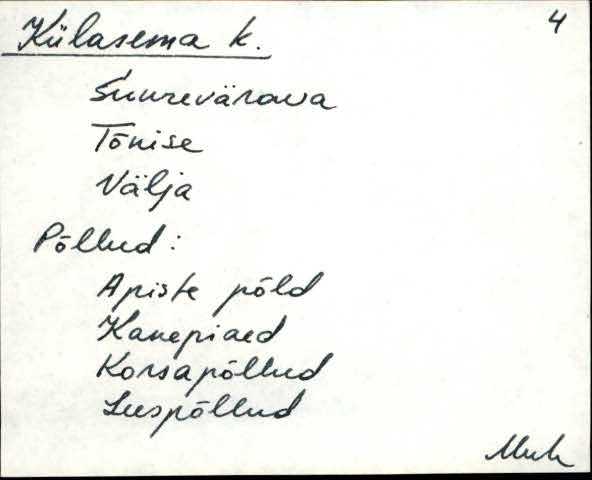 Külasema k. 4
Suurevärava
Tõnise
Välja
Põllud:
Apiste põld
Kanepiaed
Korsapõllud
Luspõllud
Muh